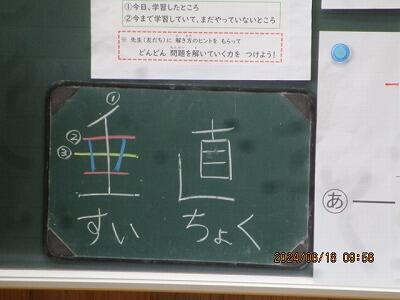 ①今日、学習したところ
②今まで学習していて、まだやっていないところ
※ 先生(友だち)に 解き方のヒントを もらって
どんどん 問題を解いていく力を つけよう!
①
②
③
垂 直
すい ちょく
1
あ
2024/08/16 09:56